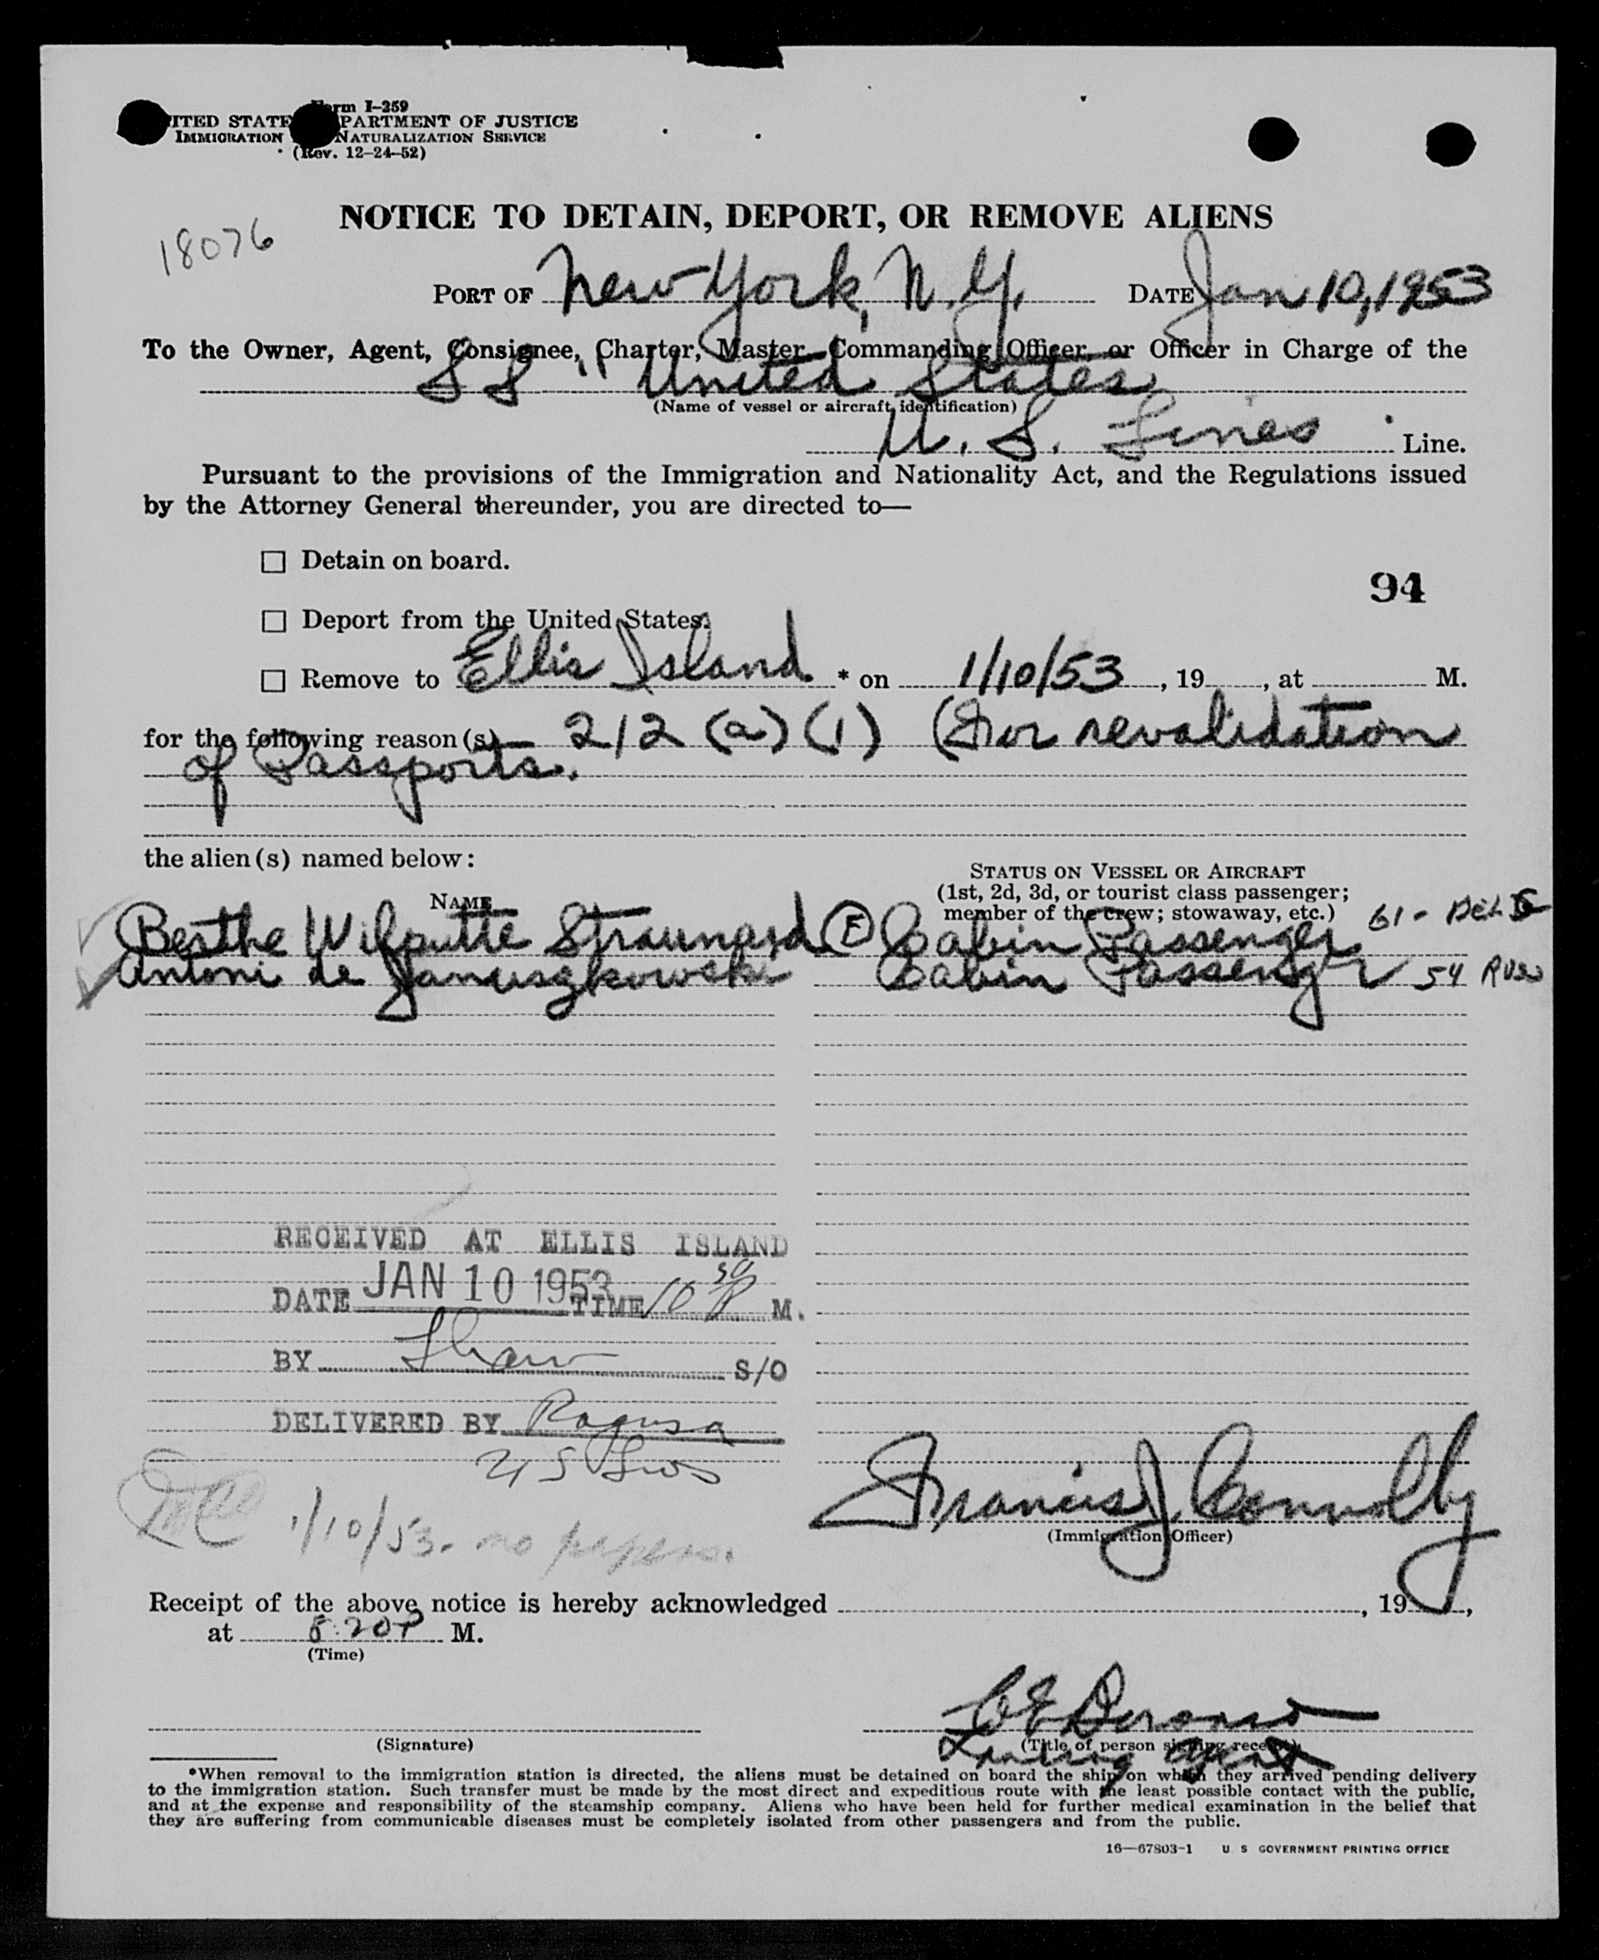 Form I-259
UNITED STATES DEPARTMENT OF JUSTICE
IMMIGRATION NATURALIZATION SERVICE
(Rev. 12-24-52)
18076
NOTICE TO DETAIN, DEPORT, OR REMOVE ALIENS
PORT OF New York, N.Y. DATE Jan 10, 1953
To the Owner, Agent, Consignee, Charter, Master, Commanding Officer, or Officer in Charge of the
SS "United States
(Name of vessel or aircraft identification)
U.S. Lines Line.
Pursuant to the provisions of the Immigration and Nationality Act, and the Regulations issued
by the Attorney General thereunder, you are directed to—
☐ Detain on board.
94
☐ Deport from the United States.
☐ Remove to Ellis Island * on 1/10/53, 19, at M.
for the following reason(s) 212 (a) (1) (For revalidation
of Passports.
the alien(s) named below:
NAME
STATUS ON VESSEL OR AIRCRAFT
(1st, 2d, 3d, or tourist class passenger;
member of the crew; stowaway, etc.)
Berthe Wilputte Straunard (F) Cabin Passenger 61-
Antoni de Januszkowski Cabin Passenger 54 Russ
RECEIVED AT ELLIS ISLAND
DATE JAN 10 1953 TIME 10 30 P M.
BY Shaw S/O
DELIVERED BY Ragusa
US Lines
1/10/53. no papers.
Francis J. Connolly
(Immigration Officer)
Receipt of the above notice is hereby acknowledged , 19 ,
at 8:20P M.
(Time)
C E
Landing Agent
(Signature)
(Title of person signing receipt)
*When removal to the immigration station is directed, the aliens must be detained on board the ship on which they arrived pending delivery
to the immigration station. Such transfer must be made by the most direct and expeditious route with the least possible contact with the public,
and at the expense and responsibility of the steamship company. Aliens who have been held for further medical examination in the belief that
they are suffering from communicable diseases must be completely isolated from other passengers and from the public.
16—67803-1 U S GOVERNMENT PRINTING OFFICE